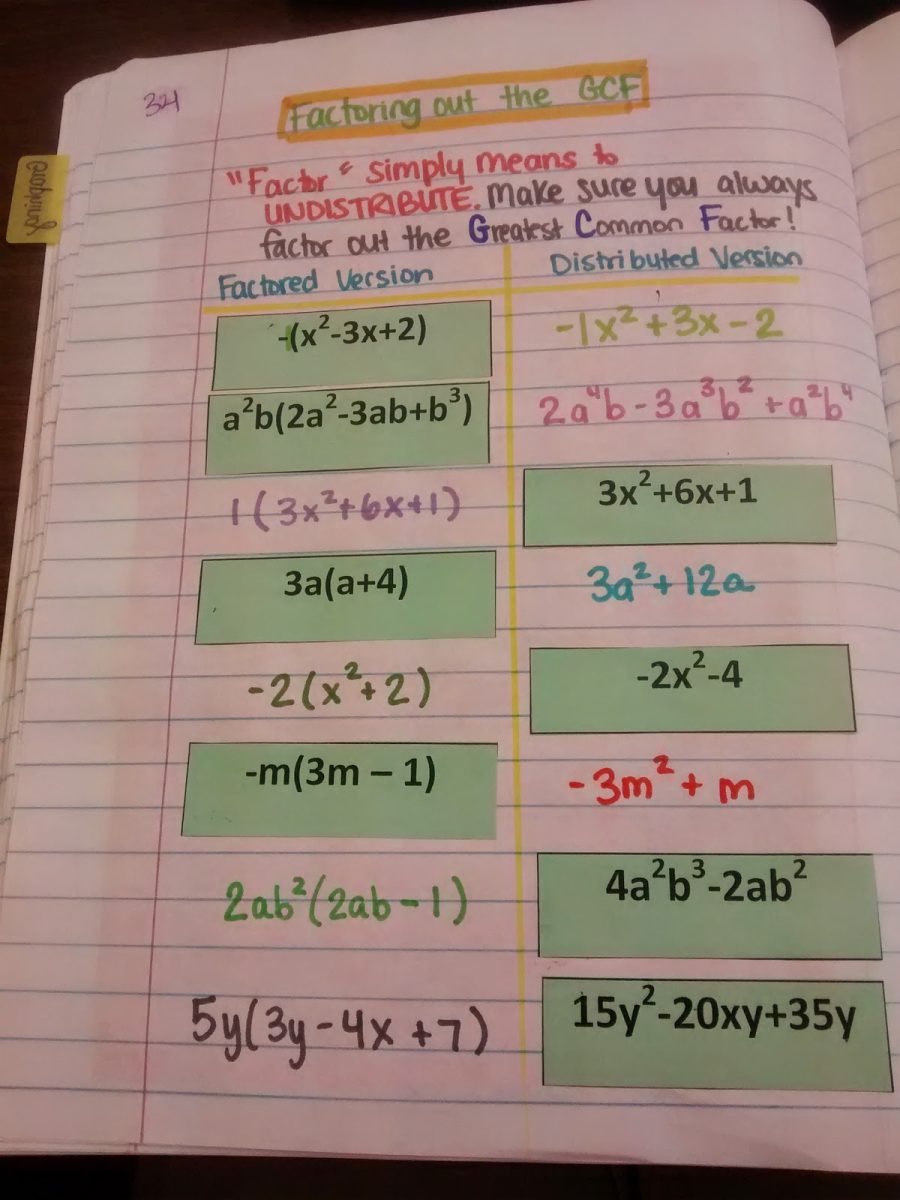 321
Factoring out the GCF
"Factor" simply means to
UNDISTRIBUTE. Make sure you always
factor out the Greatest Common Factor!
Factored Version Distributed Version
-(x²-3x+2) -1x²+3x-2
a²b(2a²-3ab+b³) 2a⁴b-3a³b²+a²b⁴
1(3x²+6x+1) 3x²+6x+1
3a(a+4) 3a²+12a
-2(x²+2) -2x²-4
-m(3m – 1) -3m²+m
2ab²(2ab-1) 4a²b³-2ab²
5y(3y-4x+7) 15y²-20xy+35y